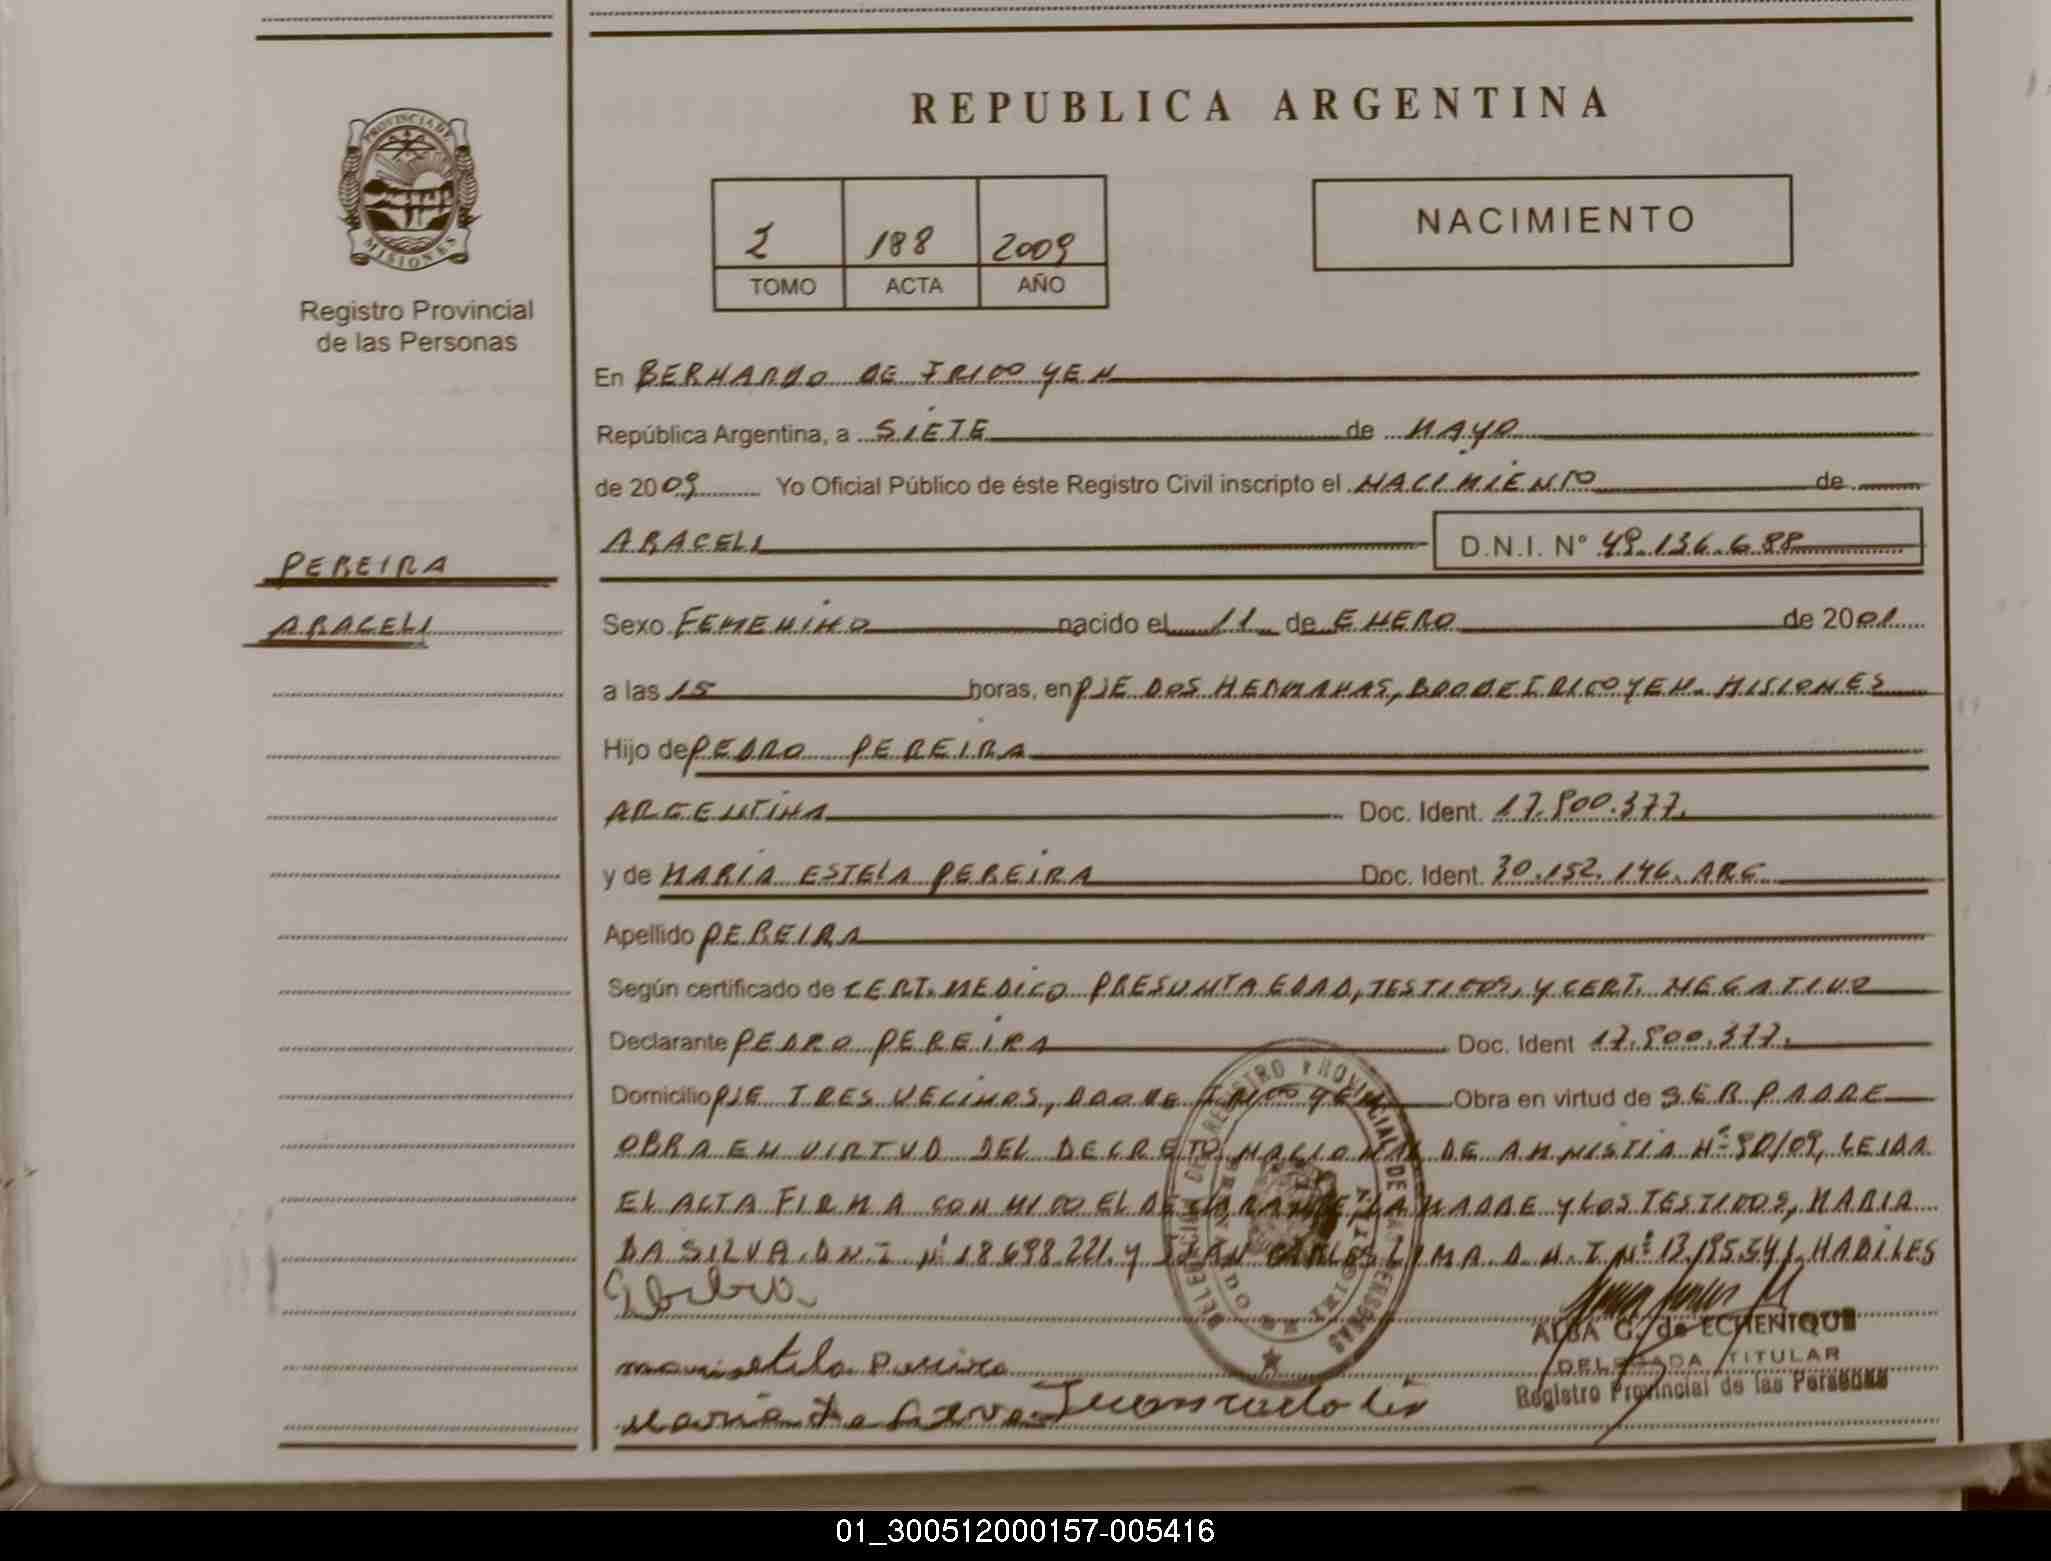 PROVINCIA DE
MISIONES
Registro Provincial
de las Personas
PEREIRA
ARACELI
REPUBLICA ARGENTINA
188 2009
TOMO ACTA AÑO
NACIMIENTO
En BERNARDO DE IRIGOYEN
República Argentina, a SIETE de MAYO
de 2009 Yo Oficial Público de éste Registro Civil inscripto el NACIMIENTO de
ARACELI D.N.I. N° 49.136.688
Sexo FEMENINO nacido el 11 de ENERO de 2001
a las 15 horas, en PJE DOS HERMANAS, BDO DE IRIGOYEN. MISIONES
Hijo de PEDRO PEREIRA
ARGENTINA Doc. Ident. 17.900.377.
y de MARIA ESTELA PEREIRA Doc. Ident. 30.152.146. ARG
Apellido PEREIRA
Según certificado de CERT. MEDICO PRESUNTA EDAD, TESTIGOS, Y CERT. NEGATIVO
Declarante PEDRO PEREIRA Doc. Ident 17.900.377.
Domicilio PJE TRES VECINOS, BDO DE IRIGOYEN Obra en virtud de SER PADRE
OBRA EN VIRTUD DEL DECRETO NACIONAL DE AMNISTIA Nº 90/09, LEIDA
EL ACTA FIRMA CONMIGO EL DECLARANTE, LA MADRE Y LOS TESTIGOS, MARIA
DA SILVA D.N.I Nº 18.698.221. Y JUAN CARLOS LIMA D.N.I Nº 13.195.541. HABILES
ALBA G. de ECHENIQUE
DELEGADA TITULAR
Registro Provincial de las Personas
01_300512000157-005416